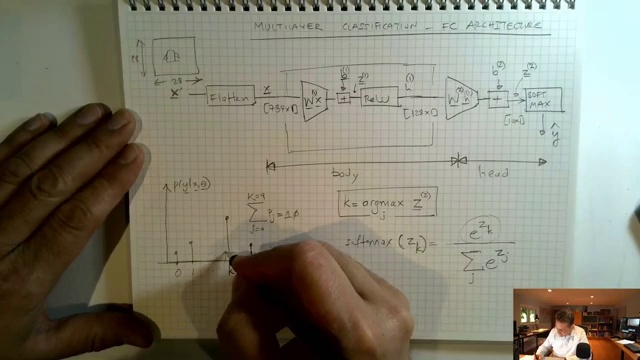 MULTILAYER CLASSIFICATION - FC ARCHITECTURE
28
28
x
Flatten
x
[784x1]
W⁽¹⁾x
b⁽¹⁾
+
z⁽¹⁾
ReLU
h⁽¹⁾
[128x1]
W⁽²⁾h⁽¹⁾
b⁽²⁾
+
z⁽²⁾
[10x1]
SOFT
MAX
ŷ
body
head
p(y|x,θ)
K=9
∑ p̂j = 1.0
j=0
0 1 k
k = argmax z⁽²⁾
j
softmax (zk) = e^zk / ∑j e^zj